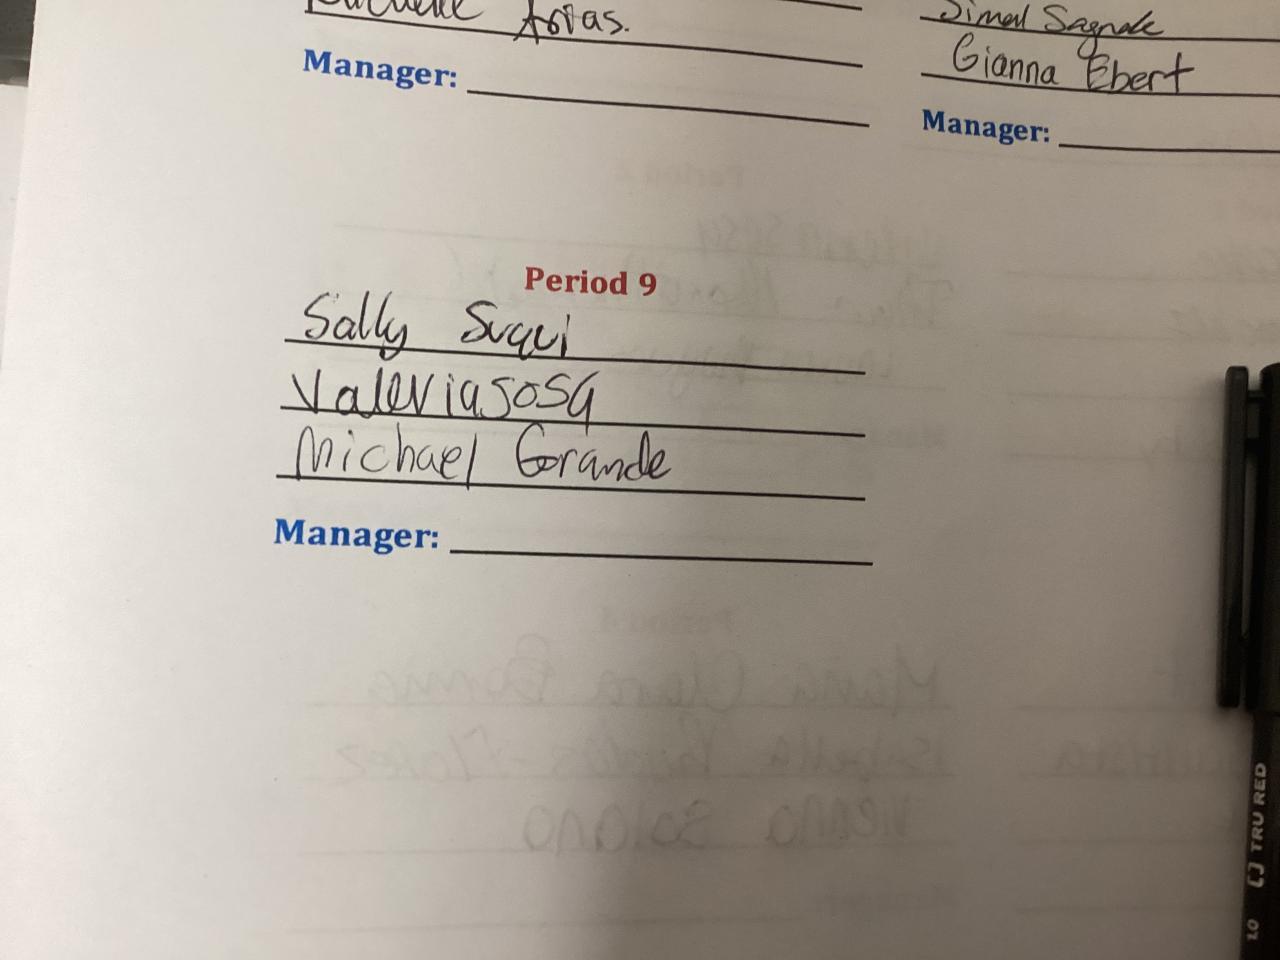 Arias.
Manager:
Simal Sagnak
Gianna Ebert
Manager:
Period 9
Sally Suqui
Valeria Sosa
Michael Grande
Manager:
TRU RED